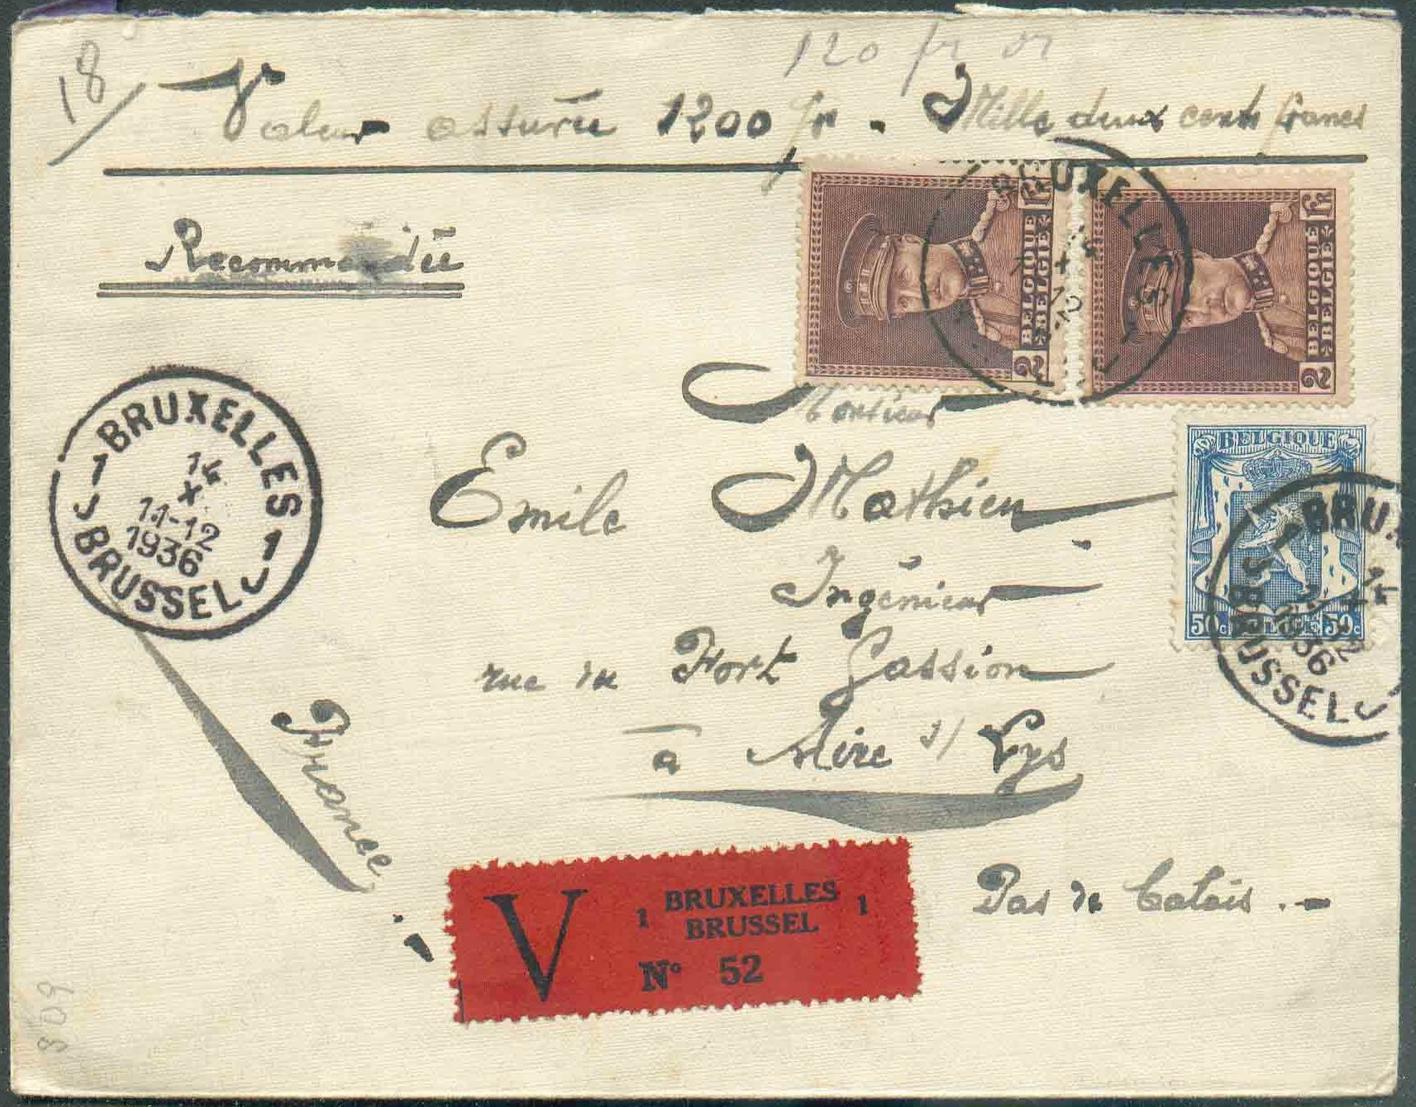 120 fr or
18/
Valeur assurée 1200 fr. Mille deux cents francs
Recommandée
BELGIQUE
BELGIË
2 FR
2
BELGIQUE
BELGIË
2 FR
2
BRUXELLES
Monsieur
Emile Mathieu
Ingénieur
rue du Fort Gassion
à Aire s/ Lys
Pas de Calais.-
France
BELGIQUE
50c BELGIË 50c
BRUX
14
X
12
1936
BRUSSEL
1 BRUXELLES 1
14
X
11-12
1936
BRUSSEL
V
1 BRUXELLES 1
BRUSSEL
N° 52
809